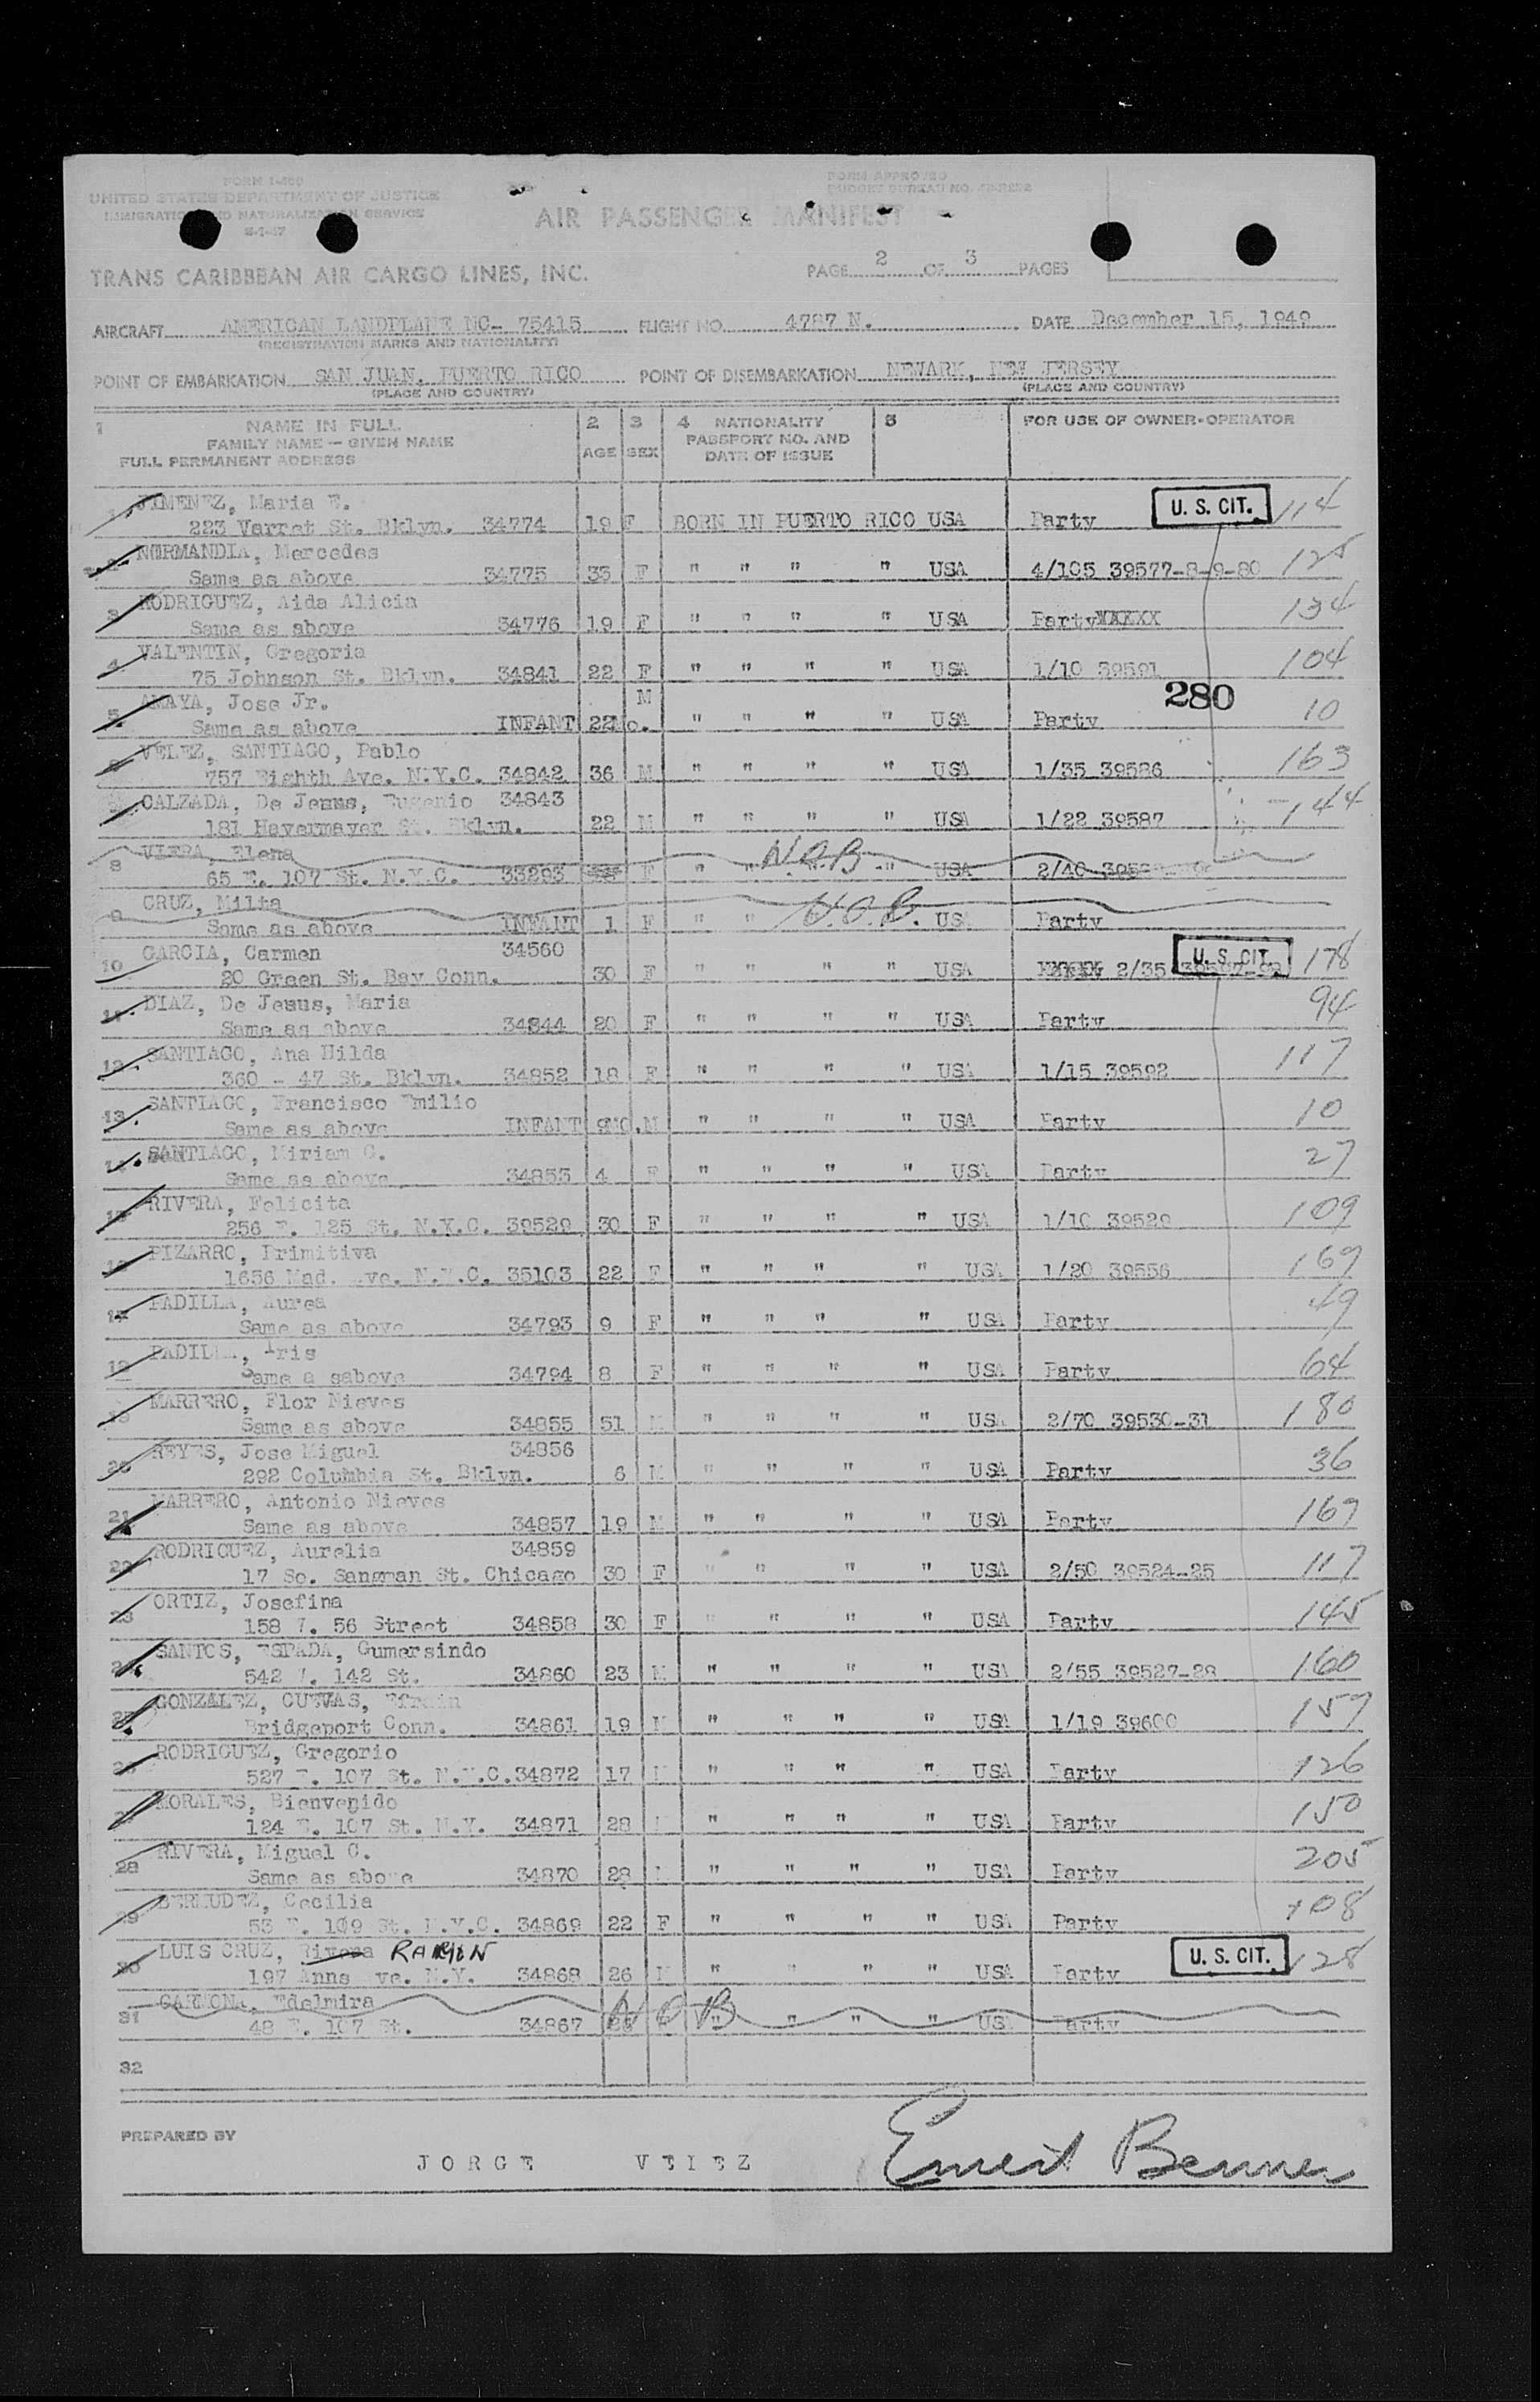 FORM I-466
UNITED STATES DEPARTMENT OF JUSTICE
IMMIGRATION AND NATURALIZATION SERVICE
FORM APPROVED
BUDGET BUREAU NO.
AIR PASSENGER MANIFEST
TRANS CARIBBEAN AIR CARGO LINES, INC.
PAGE 2 OF 3 PAGES
AIRCRAFT AMERICAN LANDPLANE NC- 75415 FLIGHT NO. 4787 N. DATE December 15, 1949
(REGISTRATION MARKS AND NATIONALITY)
POINT OF EMBARKATION SAN JUAN, PUERTO RICO POINT OF DISEMBARKATION NEWARK, NEW JERSEY
(PLACE AND COUNTRY) (PLACE AND COUNTRY)
1 NAME IN FULL 2 3 4 NATIONALITY 5 FOR USE OF OWNER-OPERATOR
FAMILY NAME — GIVEN NAME PASSPORT NO. AND
FULL PERMANENT ADDRESS AGE SEX DATE OF ISSUE
1 JIMENEZ, Maria E. U. S. CIT. 114
223 Varret St. Bklyn. 34774 19 F BORN IN PUERTO RICO USA Party
2 NORMANDIA, Mercedes
Same as above 34775 35 F " " " " USA 4/105 39577-8-9-80 125
3 RODRIGUEZ, Aida Alicia
Same as above 34776 19 F " " " " USA Party 134
4 VALENTIN, Gregoria
75 Johnson St. Bklyn. 34841 22 F " " " " USA 1/10 39591 104
5 AMAYA, Jose Jr. M 280
Same as above INFANT 22Mo. " " " " USA Party 10
6 VELEZ, SANTIAGO, Pablo
757 Eighth Ave. N.Y.C. 34842 36 M " " " " USA 1/35 39586 163
CALZADA, De Jesus, Eugenio 34843
181 Havermayer St. Bklyn. 22 M " " " " USA 1/22 39587 144
8 VIERA, Elena N.O.B.
65 E. 107 St. N.Y.C. 33293 F " " " " USA 2/40
9 CRUZ, Milta N.O.B.
Same as above INFANT 1 F " " USA Party
10 GARCIA, Carmen 34560 U. S. CIT. 178
20 Green St. Bay Conn. 30 F " " " " USA 2/35
11 DIAZ, De Jesus, Maria
Same as above 34844 20 F " " " " USA Party 94
12 SANTIAGO, Ana Hilda
360 - 47 St. Bklyn. 34852 18 F " " " " USA 1/15 39592 117
13 SANTIAGO, Francisco Emilio
Same as above INFANT 9MO. M " " " " USA Party 10
14 SANTIAGO, Miriam C.
Same as above 34853 4 F " " " " USA Party 27
15 RIVERA, Felicita
256 E. 125 St. N.Y.C. 39529 30 F " " " " USA 1/10 39529 109
16 PIZARRO, Primitiva
1656 Mad. Ave. N.Y.C. 35103 22 F " " " " USA 1/20 39556 169
17 PADILLA, Aurea
Same as above 34793 9 F " " " " USA Party 49
18 PADILLA, Iris
Same a sabove 34794 8 F " " " " USA Party 64
19 MARRERO, Flor Nieves
Same as above 34855 51 M " " " " USA 2/70 39530-31 180
20 REYES, Jose Miguel 34856
292 Columbia St. Bklyn. 6 M " " " " USA Party 36
21 MARRERO, Antonio Nieves
Same as above 34857 19 M " " " " USA Party 169
22 RODRIGUEZ, Aurelia 34859
17 So. Sangman St. Chicago 30 F " " " " USA 2/50 39524-25 117
23 ORTIZ, Josefina
158 W. 56 Street 34858 30 F " " " " USA Party 145
24 SANTOS, ESPADA, Gumersindo
542 W. 142 St. 34860 23 M " " " " USA 2/55 39527-28 160
25 GONZALEZ, CUEVAS, Efrain
Bridgeport Conn. 34861 19 M " " " " USA 1/19 39600 157
26 RODRIGUEZ, Gregorio
527 E. 107 St. N.Y.C. 34872 17 M " " " " USA Party 126
27 MORALES, Bienvenido
124 E. 107 St. N.Y. 34871 28 M " " " " USA Party 150
28 RIVERA, Miguel C.
Same as above 34870 28 M " " " " USA Party 205
29 BERMUDEZ, Cecilia
53 E. 109 St. N.Y.C. 34869 22 F " " " " USA Party 108
30 LUIS CRUZ, Rivera RAMON U. S. CIT. 128
197 Anns Ave. N.Y. 34868 26 M " " " " USA Party
31 CARMONA, Edelmira N O B
48 E. 107 St. 34867 " " " " USA Party
32
PREPARED BY
JORGE VELEZ Ernest Benner